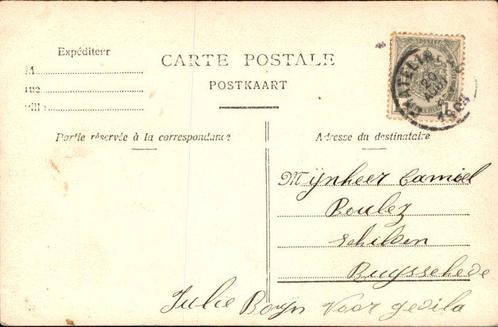 Expéditeur
CARTE POSTALE
POSTKAART
M
rue
ville
Partie réservée à la correspondance
Adresse du destinataire
Mijnheer Camiel
Boulez
Schilder
Ruysselede
Julie Boijn Voor gedila